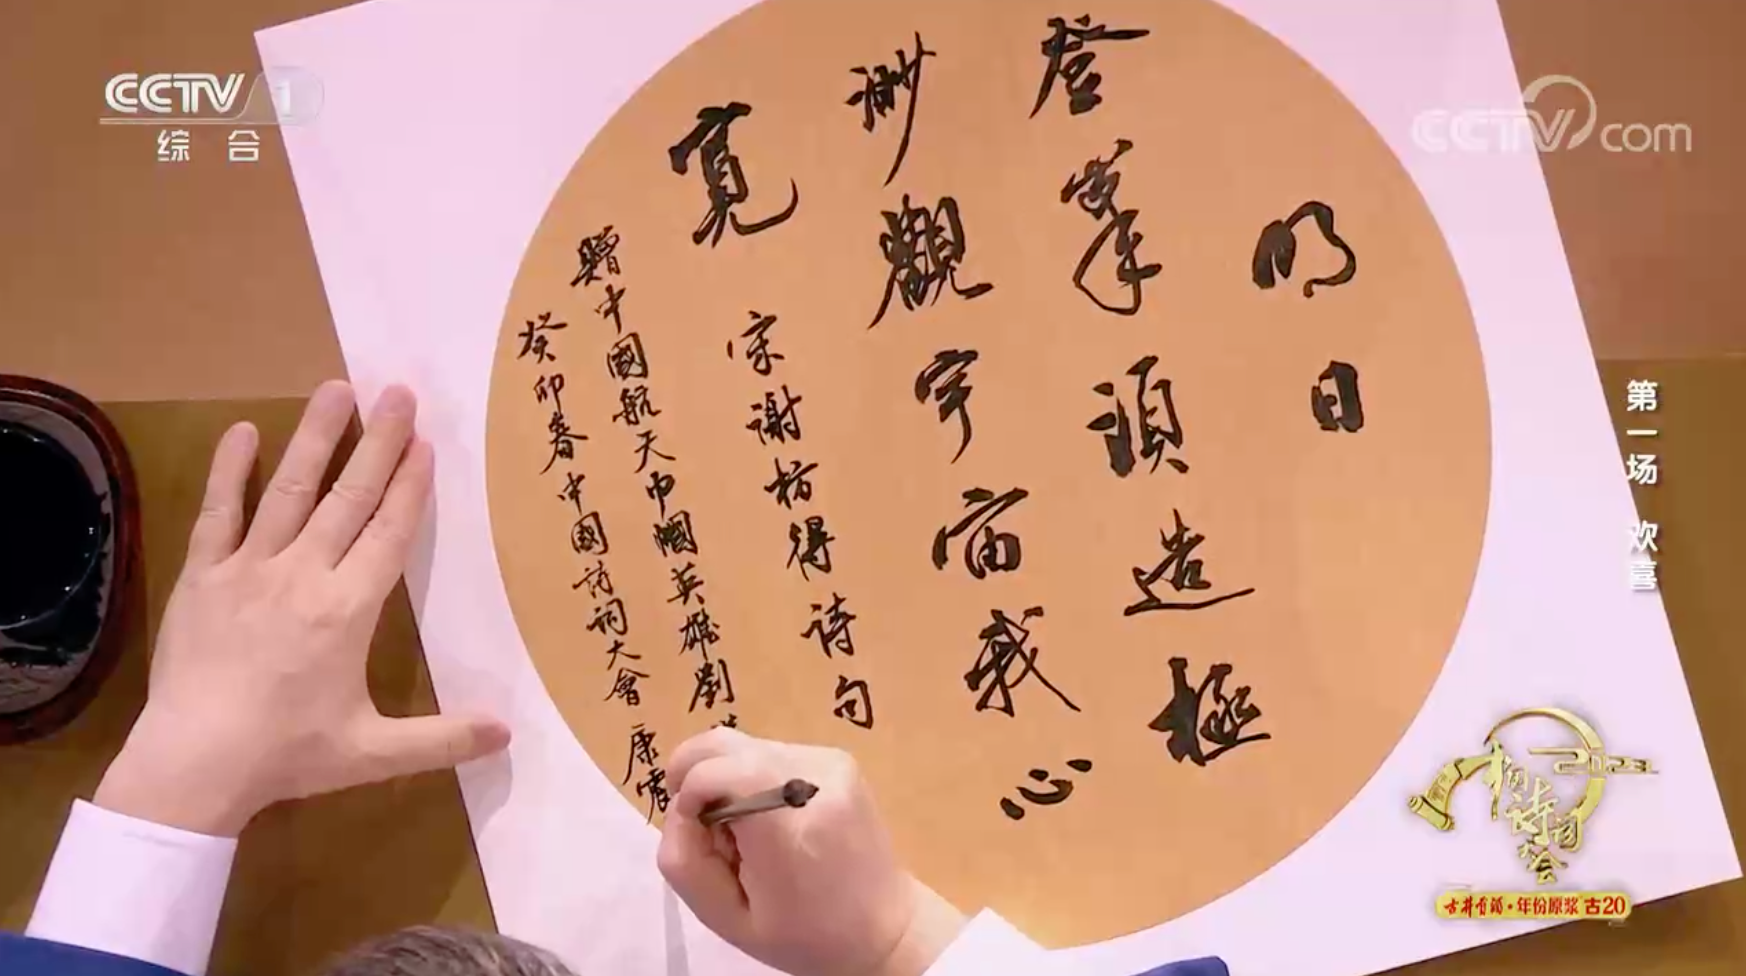 CCTV 1
综合
CCTV.com
明日
登峯須造極
渺觀宇宙我心
寬
宋謝枋得詩句
贈中國航天巾幗英雄劉
癸卯春中國詩詞大會康震
第一场 欢喜
2023
中国诗词大会
古井贡酒·年份原浆 古20